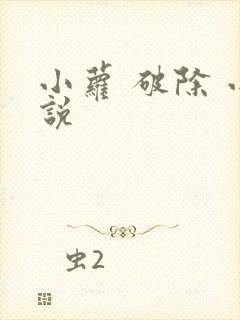 小蘿 破除 小
說
虫2